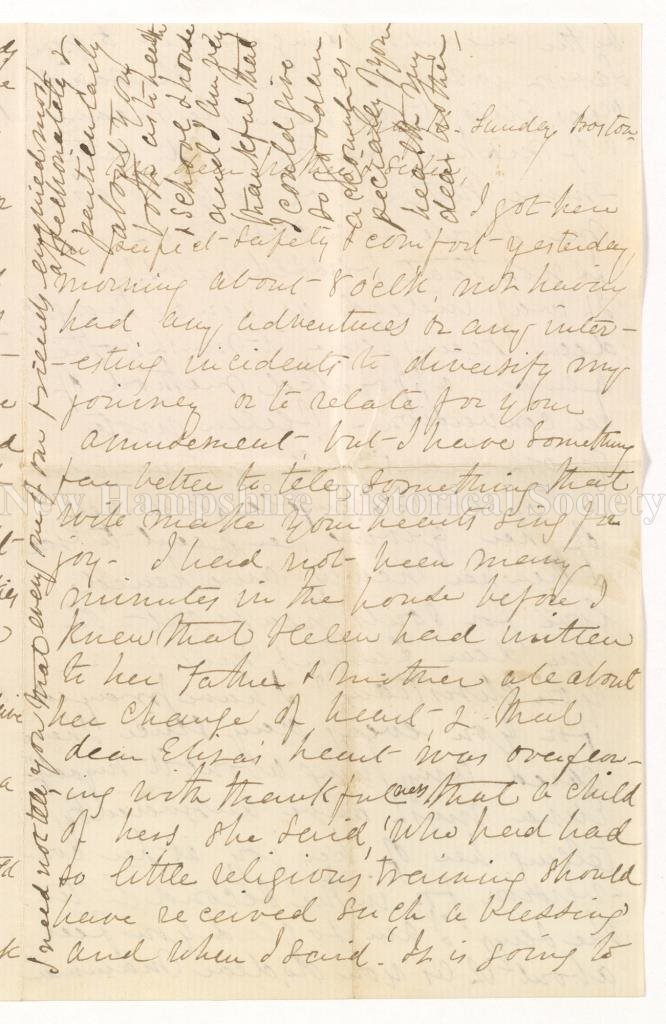 Sunday, Boston
My dear Mother & Sister,
I got here
in perfect safety & comfort yesterday
morning about 8 o'clk, not having
had any adventures or any inter-
-esting incidents to diversify my
journey or to relate for your
amusement, but I have something
far better to tell, something that
will make your hearts sing for
joy - I had not been many
minutes in the house before I
knew that Helen had written
to her Father & mother all about
her change of heart, & that
dear Eliza's heart was overflow-
ing with thankfulness that a child
of hers she said, 'who had had
so little religious training should
have received such a blessing
and when I said. 'It is going to
I need not tell you that every one of our friends enquired most
affectionately &
particularly
about you
both as to health
& school & house
and I am very
thankful that
I could give
so good an
account es-
pecially of your
health my
dear mother -
New Hampshire Historical Society